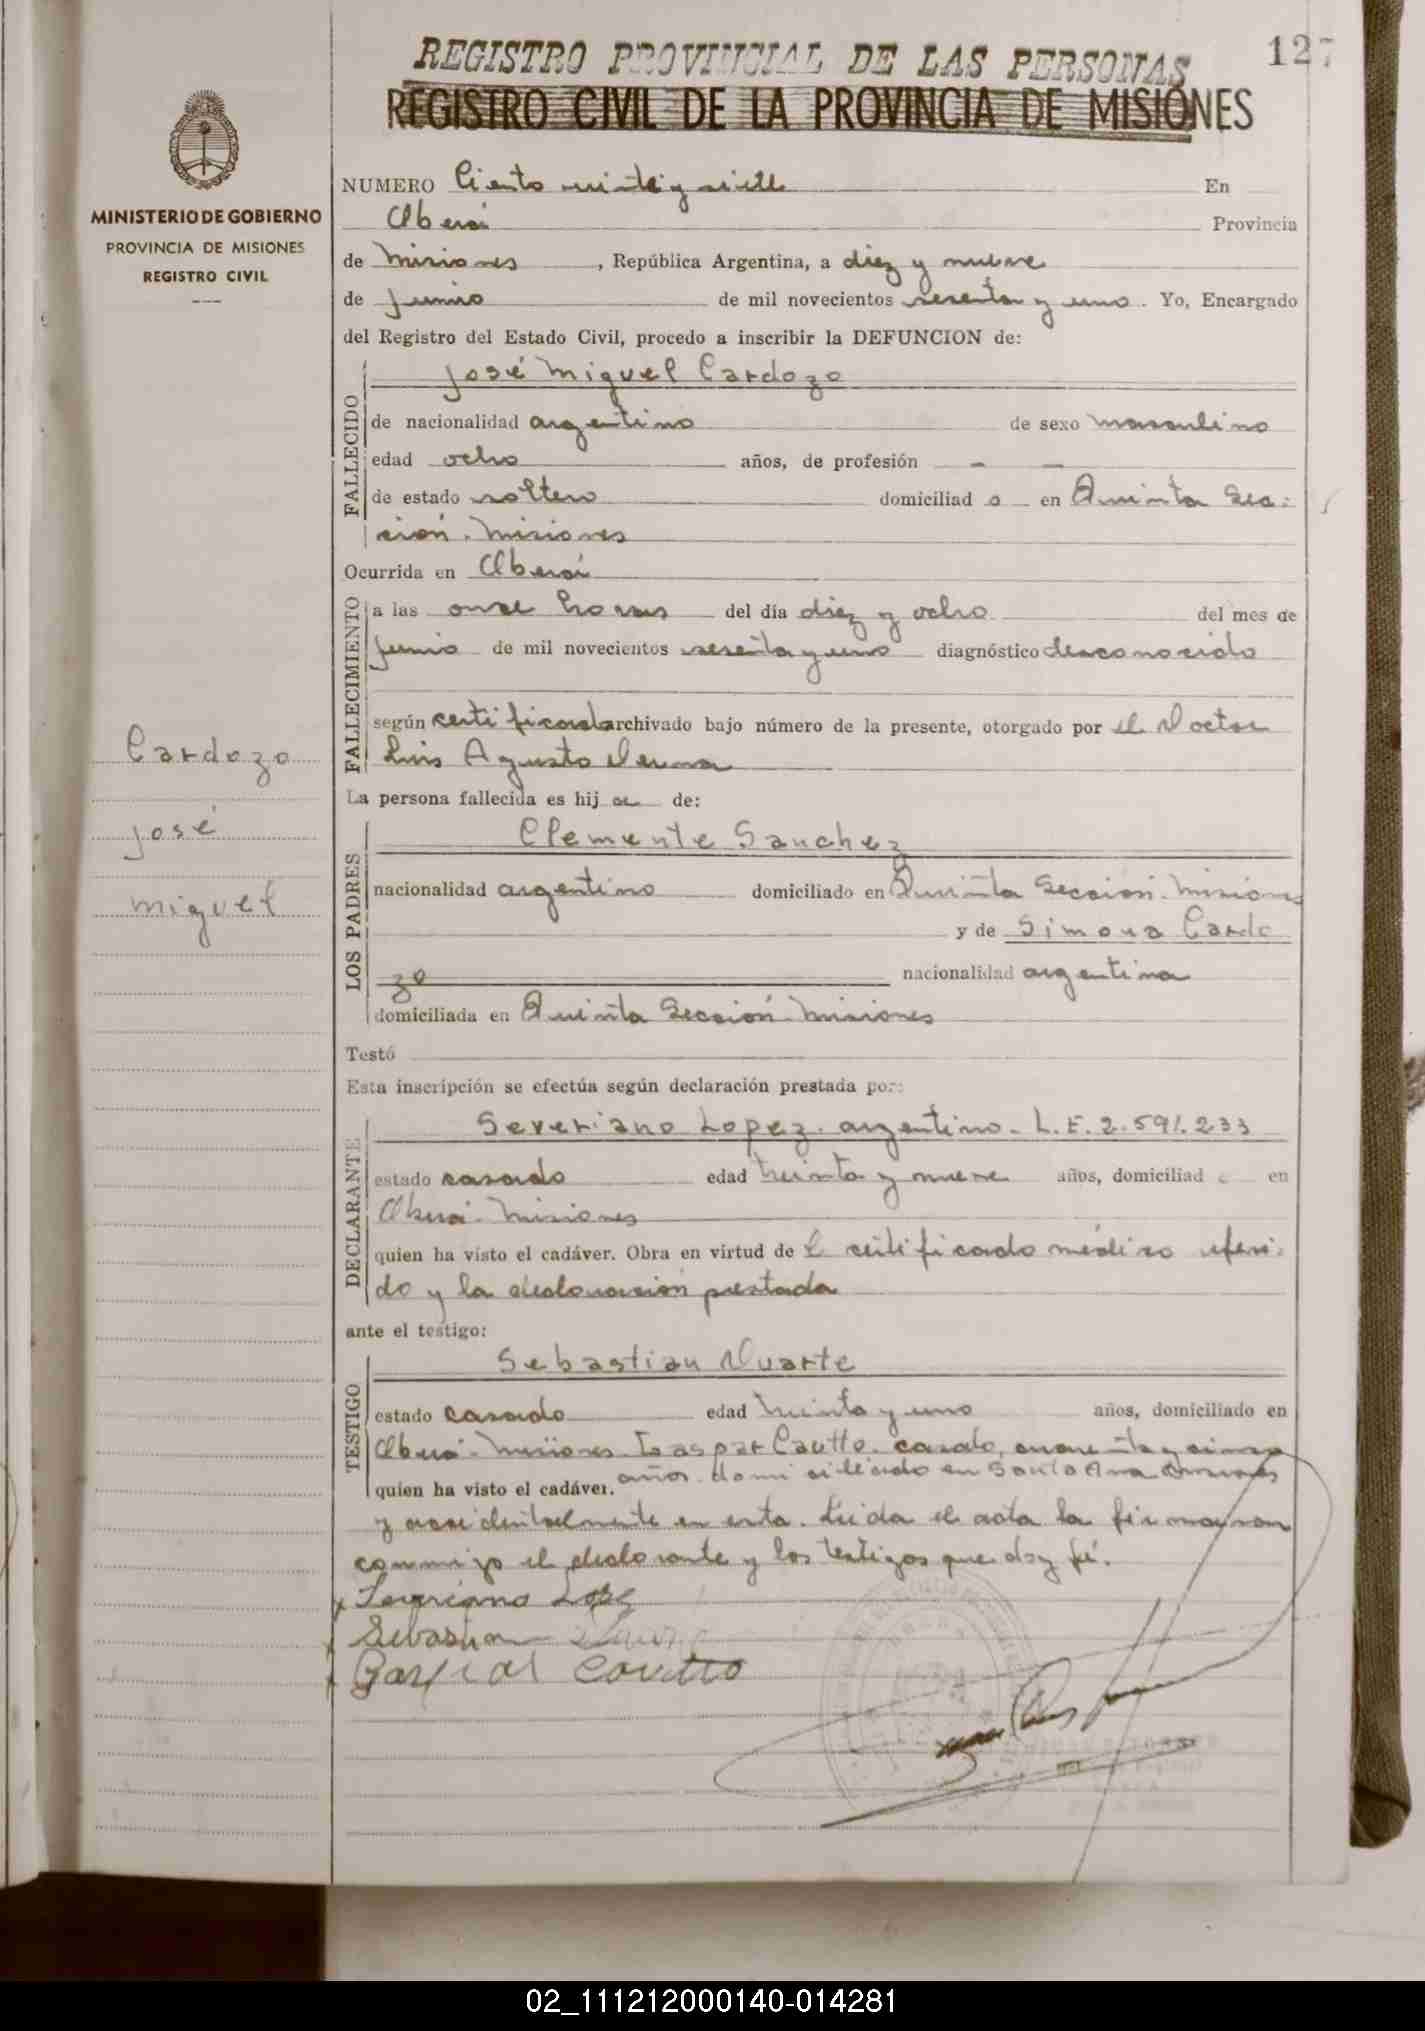 127
REGISTRO PROVINCIAL DE LAS PERSONAS
REGISTRO CIVIL DE LA PROVINCIA DE MISIONES
MINISTERIO DE GOBIERNO
PROVINCIA DE MISIONES
REGISTRO CIVIL
NUMERO Ciento veinte y siete En
Oberá Provincia
de Misiones, República Argentina, a diez y nueve
de Junio de mil novecientos sesenta y uno. Yo, Encargado
del Registro del Estado Civil, procedo a inscribir la DEFUNCION de:
José Miguel Cardozo
FALLECIDO
de nacionalidad argentino de sexo masculino
edad ocho años, de profesión - -
de estado soltero domiciliad o en Quinta Sec-
ción. Misiones
Ocurrida en Oberá
FALLECIMIENTO
a las once horas del día diez y ocho del mes de
Junio de mil novecientos sesenta y uno diagnóstico desconocido
según certificado archivado bajo número de la presente, otorgado por el Doctor
Luis Agusto
La persona fallecida es hij o de:
Cardozo
José
Miguel
LOS PADRES
Clemente Sanchez
nacionalidad argentino domiciliado en Quinta Sección. Misiones
y de Simona Cardo
zo nacionalidad argentina
domiciliada en Quinta Sección Misiones
Testó
Esta inscripción se efectúa según declaración prestada por:
DECLARANTE
Severiano Lopez. argentino. L.E. 2.591.233
estado casado edad treinta y nueve años, domiciliad o en
Oberá. Misiones
quien ha visto el cadáver. Obra en virtud de l certificado médico referi-
do y la declaración prestada
ante el testigo:
TESTIGO
Sebastian Duarte
estado casado edad treinta y uno años, domiciliado en
Oberá. Misiones. Gaspar Cautto. casado, cuarenta y cinco
quien ha visto el cadáver. años. domiciliado en Santa Ana Misiones
y accidentalmente en esta. Leida el acta la firmaron
conmigo el declarante y los testigos que doy fé.
Severiano Lopez
Sebastian Duarte
02_111212000140-014281